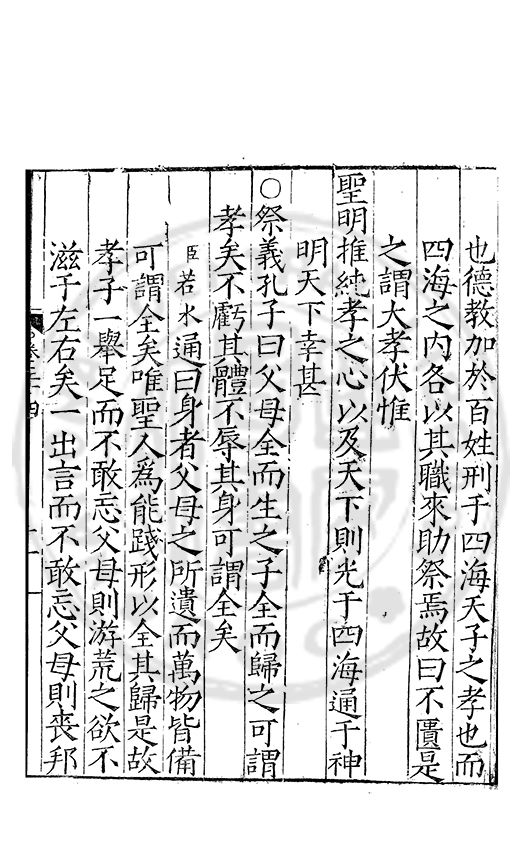 也德教加於百姓刑于四海天子之孝也而
四海之内各以其職來助祭焉故曰不匱是
之謂大孝伏惟
聖明推純孝之心以及天下則光于四海通于神
明天下幸甚
○祭義孔子曰父母全而生之子全而歸之可謂
孝矣不虧其體不辱其身可謂全矣
臣若水通曰身者父母之所遺而萬物皆備
可謂全矣唯聖人為能踐形以全其歸是故
孝子一舉足而不敢忘父母則游荒之欲不
滋于左右矣一出言而不敢忘父母則喪邦